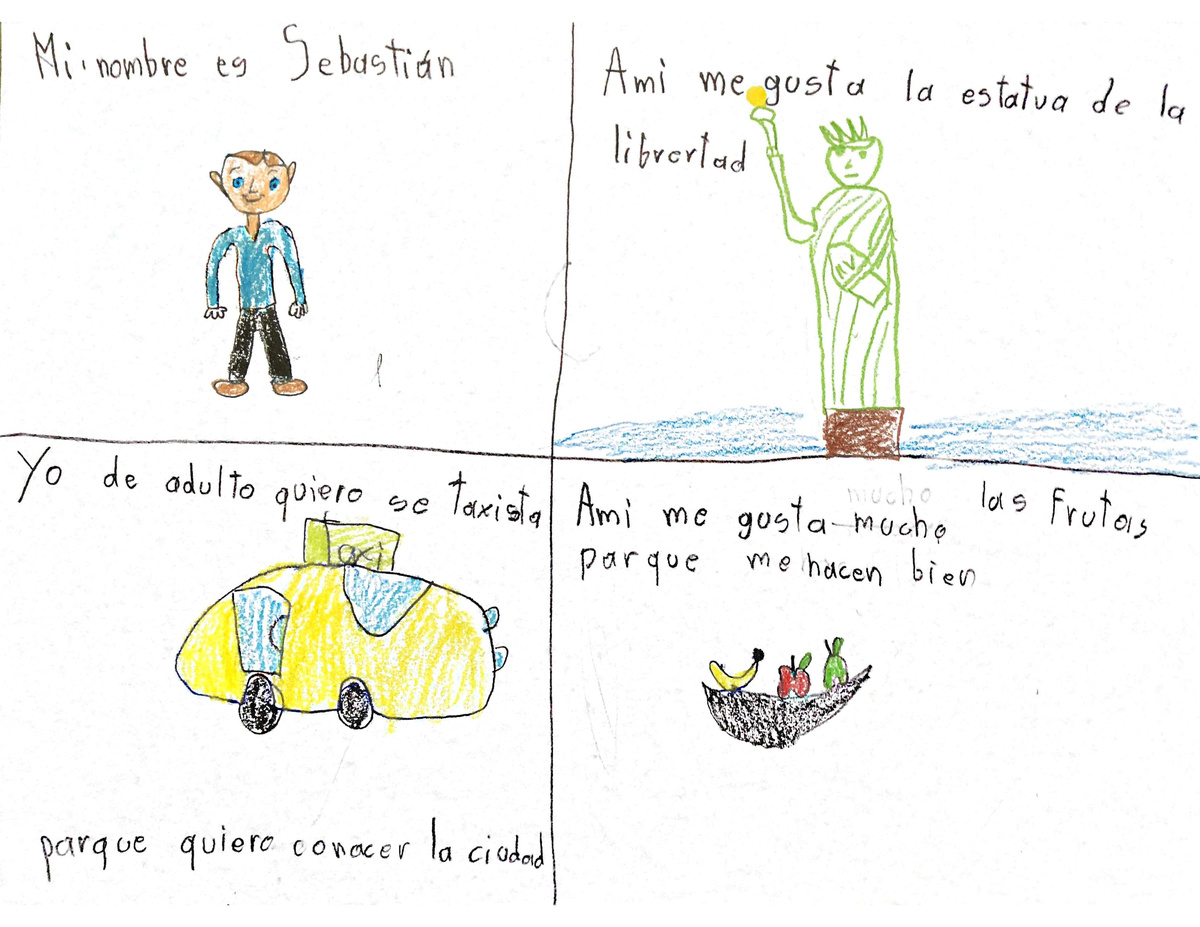 Mi nombre es Sebastián
Ami me gusta la estatua de la
librertad
Yo de adulto quiero se taxista
taxi
parque quiero conacer la ciudad
Ami me gusta mucho las Frutas
parque me hacen bien